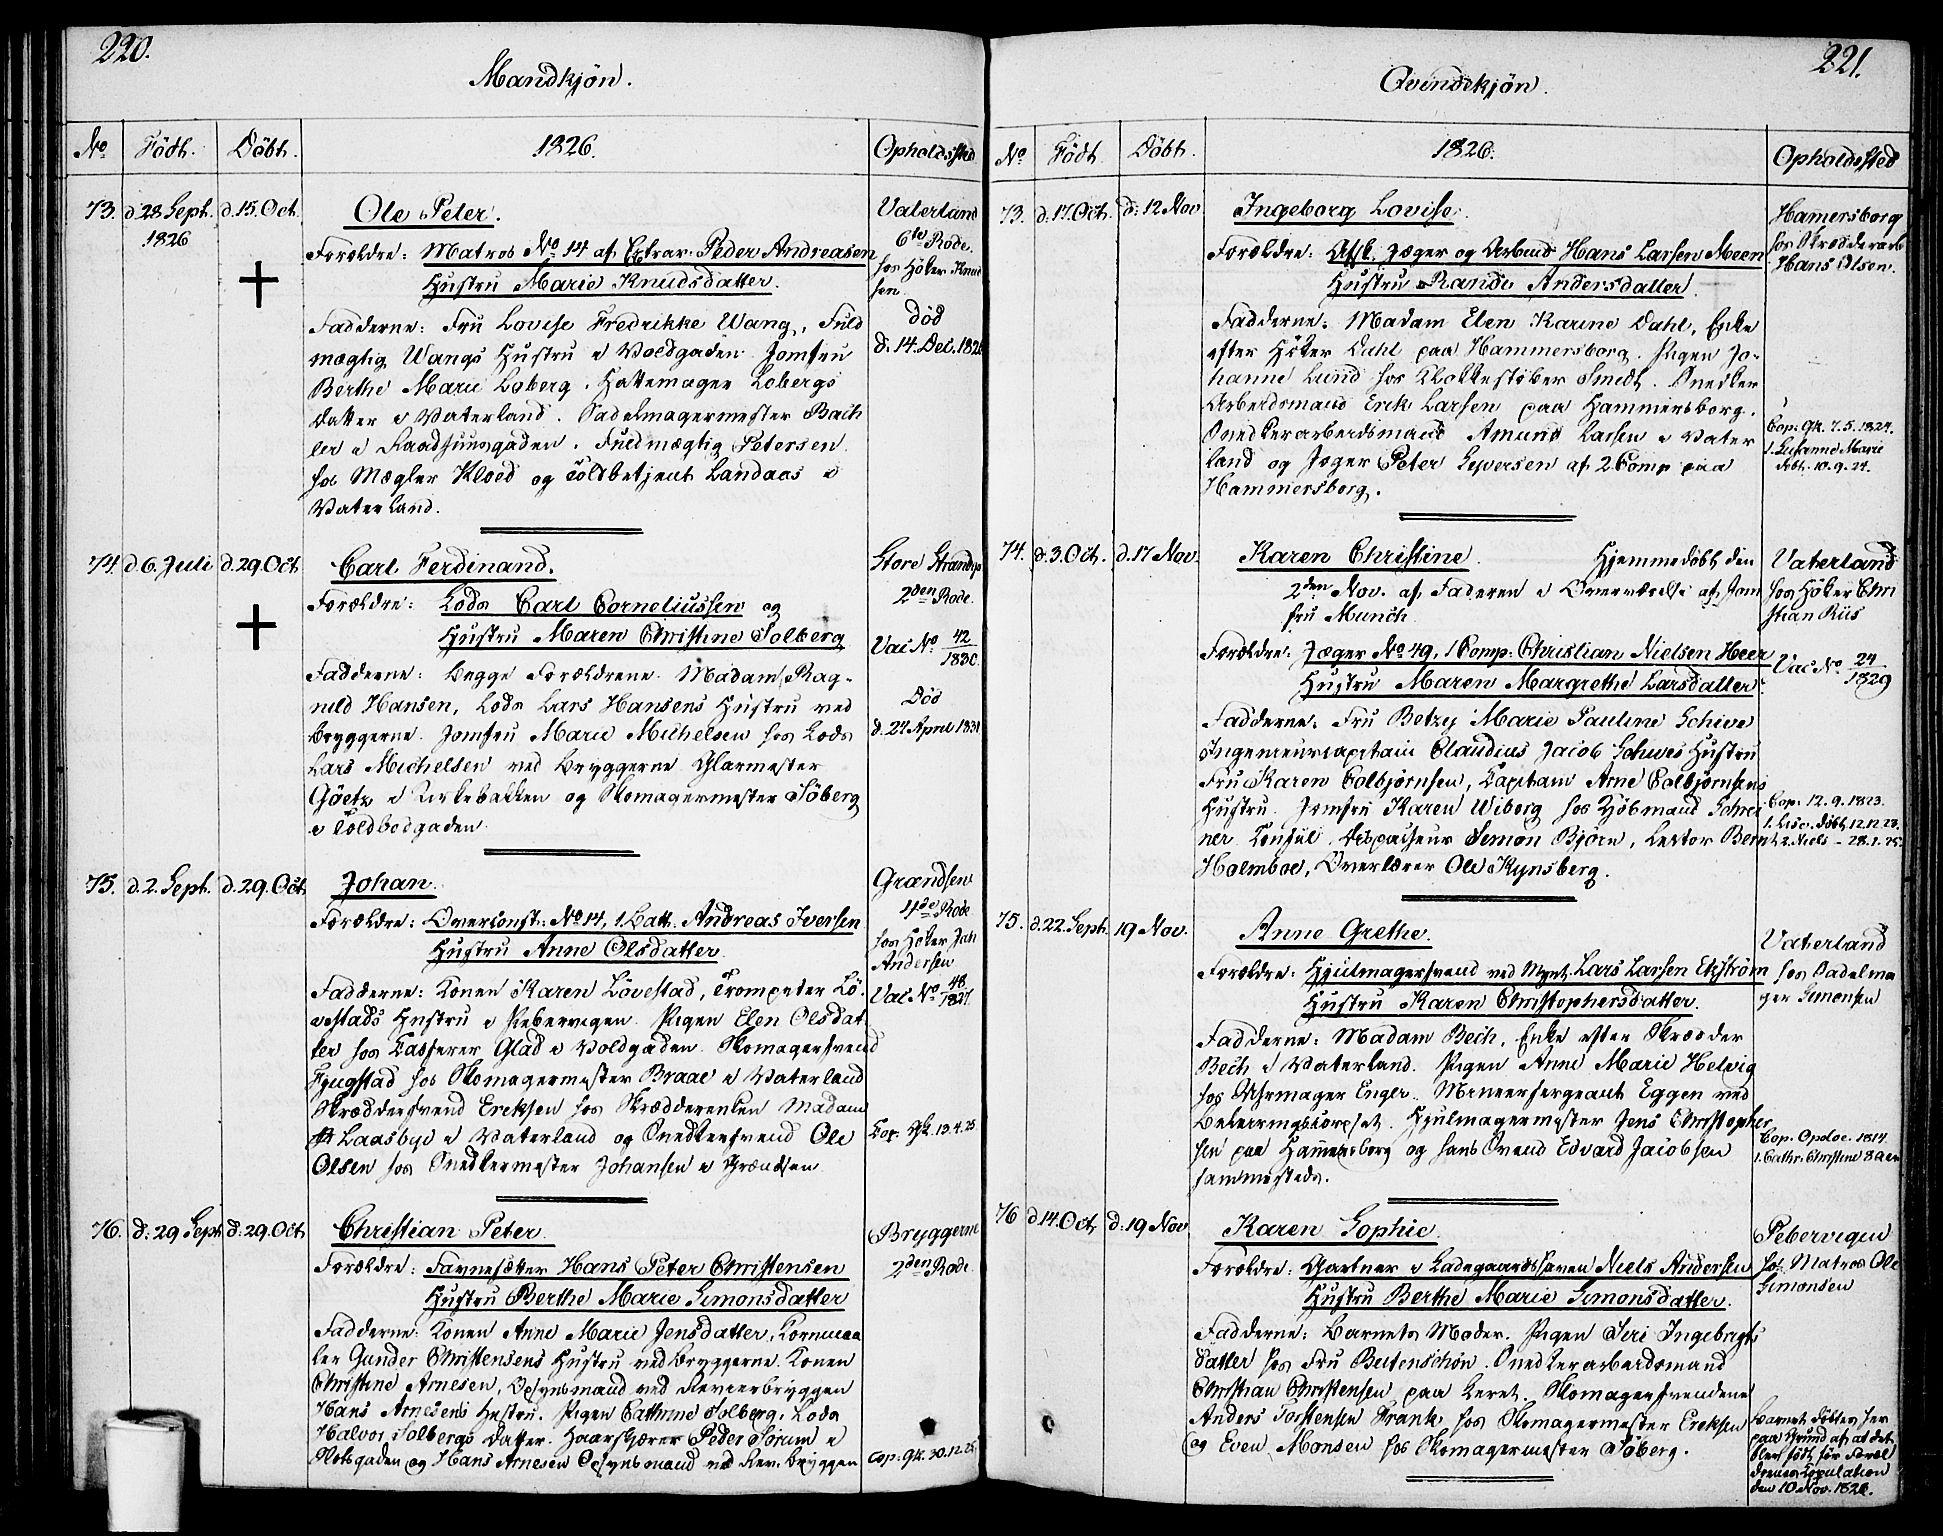 220.
Mandkjön.
No. Födt. Döbt. 1826. Opholdssted
73. d. 28 Sept. 1826 d. 15. Oct.
Ole Peter.
Forældre: Matros No 14 af Extrar. Peder Andreasen
Hustru Marie Knudsdatter.
Fadderne: Fru Lovise Fredrikke Wang, Fuld
mægtig Wangs Hustru i Voldgaden. Jomfru
Berthe Marie Loberg, Hattemager Lobergs
Datter i Vaterland. Sadelmagermester Bach
ler i Raadhuusgaden. Fuldmægtig Petersen
hos Mægler Kloed og Toldbetjent Landaas i
Vaterland.
Vaterland
6te Rode.
hos Höker Knud
sen.
död
d. 14. Dec. 1826
74. d. 6. Juli d. 29 Oct.
Carl Ferdinand.
Forældre: Lods Carl Corneliussen og
Hustru Maren Christine Solberg
Fadderne: Begge Forældrene. Madam Rag-
nild Hansen, Lods Lars Hansens Hustru ved
Bryggerne. Jomfru Marie Michelsen hos Lods
Lars Michelsen ved Bryggerne. Glarmester
Göetz i Kirkebakken og Skomagermester Söberg
i Toldbodgaden.
Store Strandg
2den Rode.
Vac No 42/1830.
Död
d. 27 April 1831
75. d. 2. Sept. d. 29. Oct.
Johan.
Forældre: Overconst: No 14, 1 Batt. Andreas Iversen
Hustru Anne Olsdatter.
Fadderne: Konen Karen Lövestad, Trompeter Lö-
vestads Hustru i Pebervigen. Pigen Elen Olsdat-
ter hos Casserer Glad i Voldgaden. Skomagersvend
Fjugstad hos Skomagermester Braae i Vaterland
Skræddersvend Ericksen hos Skrædderenken Madam
Laasbye i Vaterland og Snedkersvend Ole
Olsen hos Snedkermester Johansen i Grændsen
Grændsen
4de Rode
hos Höker Joh
Andersen
Vac No 48/1827.
Cop. Gk. 13.4.25
76. d. 29 Sept. d. 29. Oct.
Christian Peter.
Forældre: Favnesætter Hans Peter Christensen
Hustru Berthe Marie Simonsdatter
Fadderne: Konen Anne Marie Jensdatter, Kornmaa
ler Gunder Christensens Hustru ved Bryggerne. Konen
Christine Arnesen, Opsynsmand ved Revierbryggen
Hans Arnesens Hustru. Pigen Cathrine Solberg, Lods
Halvor Solbergs Datter. Haarskærer Peder Sörum i
Slotsgaden og Hans Arnesen Opsynsmand ved Rev. bryggen
Bryggerne
2den Rode
Cop: Gk. 30.12.25.
221.
Qvindekjön.
No. Födt Döbt. 1826. Opholdssted
73. d. 17. Oct. d. 12 Nov.
Ingeborg Lovise.
Forældre: Afsk. Jæger og Arbmd Hans Larsen Meen
Hustru Randi Andersdatter.
Fadderne: Madam Elen Karine Dahl, Enke
efter Höker Dahl paa Hammersborg. Pigen Jo-
hanne Lund hos Klokkestöber Smedt. Snedker
Arbeidsmand Erik Larsen paa Hammersborg.
Snedkerarbeidsmand Amund Larsen i Vater
land og Jæger Peter Seversen af 2 Comp paa
Hammersborg.
Hamersborg
hos Skrædderarb
Hans Olsen.
Cop: Gk. 7.5.1824.
1. Susanne Marie
döbt. 10.9.24.
74. d. 3. Oct. d. 17 Nov.
Karen Christine. Hjemmedöbt den
2den Nov. af Faderen i Overværelse af Jom
fru Munch.
Forældre: Jæger No 49, 1 Comp: Christian Nielsen Heer
Hustru Maren Margrethe Larsdatter.
Fadderne: Fru Betzy Marie Pauline Schive
Ingenieurcapitain Claudius Jacob Schives Hustru
Fru Karen Colbjørnsen, Capitain Arne Colbjørnsens
Hustru. Jomfru Karen Wiberg hos Kjöbmand Schrei
ner. Consul, Dispacheur Simon Bjørn, Lector Bernt
Holmboe, Overlærer Ole Rynsberg.
Vaterland
hos Höker Chri
stian Riis
Vac No. 24/1829
Cop. 12.9.1823.
1. Lise. döbt 12.12.23.
2. Niels - 28.1.25.
75. d. 22. Sept. 19 Nov.
Anne Grethe.
Forældre: Hjulmagersvend ved Mynt. Lars Larsen Ekström
Hustru Karen Christophersdatter.
Fadderne: Madam Bech, Enke efter Skrædder
Bech i Vaterland. Pigen Anne Marie Helvig
hos Uhrmager Engler. Mineersergeant Eggen ved
Beleiringscorpset. Hjulmagermester Jens Christopher
sen paa Hammersborg og hans Svend Edvard Jacobsen
sammesteds.
Vaterland
hos Sadelma
ger Simonsen
Cop. Opsloe. 1817.
1. Cathr: Christine 8 aar
76 d. 14. Oct. d. 19 Nov.
Karen Sophie.
Forældre: Gartner i Ladegaardshaven Niels Andersen
Hustru Berthe Marie Simonsdatter.
Fadderne: Barnets Moder. Pigen Siri Ingebregts
datter hos Fru Beitenschøn. Snedkerarbeidsmand
Christian Christensen paa Leret. Skomagersvendene
Anders Torstensen Krank hos Skomagermester Ericksen
og Even Monsen hos Skomagermester Söberg.
Pebervigen
hos Matros Ole
Simonsen
Barnet döbtes her
paa Grund af at det
blev födt för Foræl
drenes Copulation
den 10 Nov. 1826.